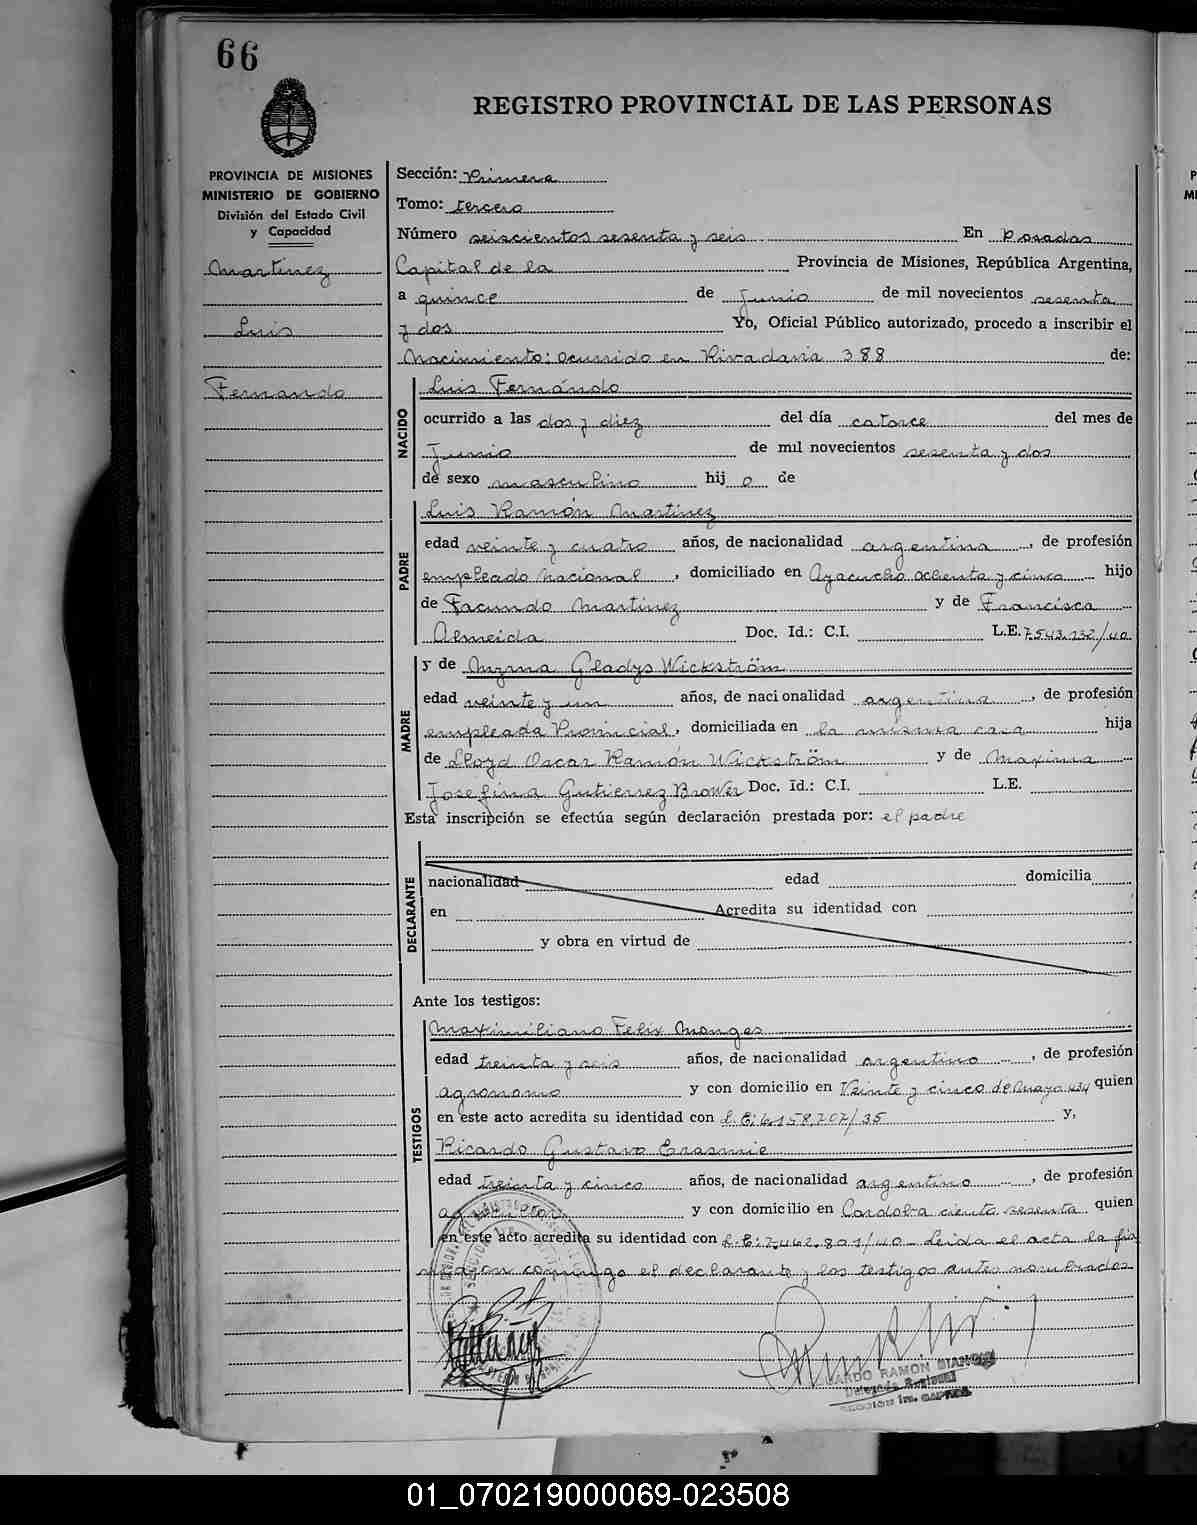 66
REGISTRO PROVINCIAL DE LAS PERSONAS
PROVINCIA DE MISIONES
MINISTERIO DE GOBIERNO
División del Estado Civil
y Capacidad
Martinez
Luis
Fernando
Sección: Primera
Tomo: tercero
Número seiscientos sesenta y seis En Posadas
Capital de la Provincia de Misiones, República Argentina,
a quince de Junio de mil novecientos sesenta
y dos Yo, Oficial Público autorizado, procedo a inscribir el
Nacimiento: ocurrido en Rivadavia 388 de:
NACIDO
Luis Fernándo
ocurrido a las dos y diez del día catorce del mes de
Junio de mil novecientos sesenta y dos
de sexo masculino hij o de
PADRE
Luis Ramón Martinez
edad veinte y cuatro años, de nacionalidad argentina, de profesión
empleado Nacional, domiciliado en Ayacucho ochenta y cinco hijo
de Facundo Martinez y de Francisca
Almeida Doc. Id.: C.I. L.E. 7.543.132/40
MADRE
y de Myrna Gladys Wickström
edad veinte y un años, de nacionalidad argentina, de profesión
empleada Provincial, domiciliada en la misma casa hija
de Lloyd Oscar Ramón Wickström y de Maxima
Josefina Gutierrez Brower Doc. Id.: C.I. L.E.
Esta inscripción se efectúa según declaración prestada por: el padre
DECLARANTE
nacionalidad edad domicilia
en Acredita su identidad con
y obra en virtud de
Ante los testigos:
TESTIGOS
Maximiliano Felix Monges
edad treinta y seis años, de nacionalidad argentino, de profesión
agronomo y con domicilio en Veinte y cinco de Mayo 434 quien
en este acto acredita su identidad con L.E: 6.158.707/35 y,
Ricardo Gustavo Erasmie
edad treinta y cinco años, de nacionalidad argentino, de profesión
y con domicilio en Cordoba ciento sesenta quien
en este acto acredita su identidad con L.E: 7.462.801/40 - Leida el acta la fir
maron conmigo el declarante y los testigos antes nombrados
ARDO RAMON BIANCHI
Delegado Regional
01_070219000069-023508